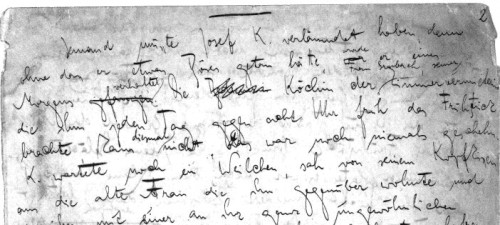 2
Jemand musste Josef K. verläumdet haben denn
ohne dass er etwas Böses getan hätte, wurde er eines
Morgens verhaftet. Die Köchin der Zimmervermieterin
Frau Grubach, seiner
die ihm jeden Tag gegen acht Uhr früh das Frühstück
brachte kam diesmal nicht. Das war noch niemals geschehn.
K. wartete noch ein Weilchen, sah von seinem Kopfkissen
aus die alte Frau die ihm gegenüber wohnte und
die ihn mit einer an ihr ganz ungewöhnlichen